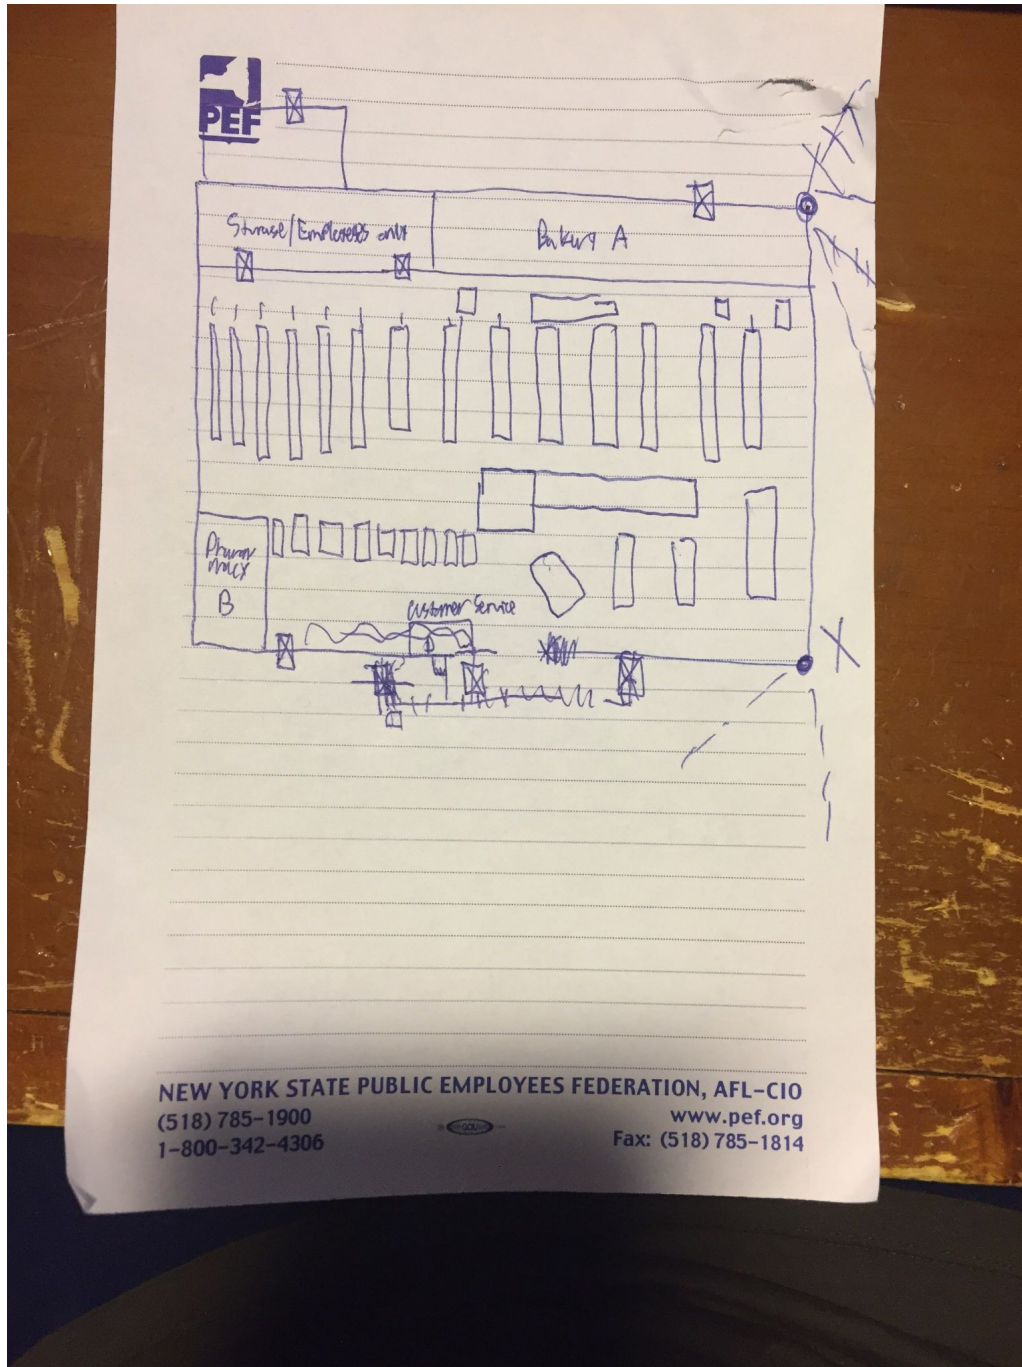 PEF
Storage/Employees only
Bakery A
Pharm
macy
B
Customer Service
NEW YORK STATE PUBLIC EMPLOYEES FEDERATION, AFL-CIO
(518) 785-1900
www.pef.org
1-800-342-4306
Fax: (518) 785-1814